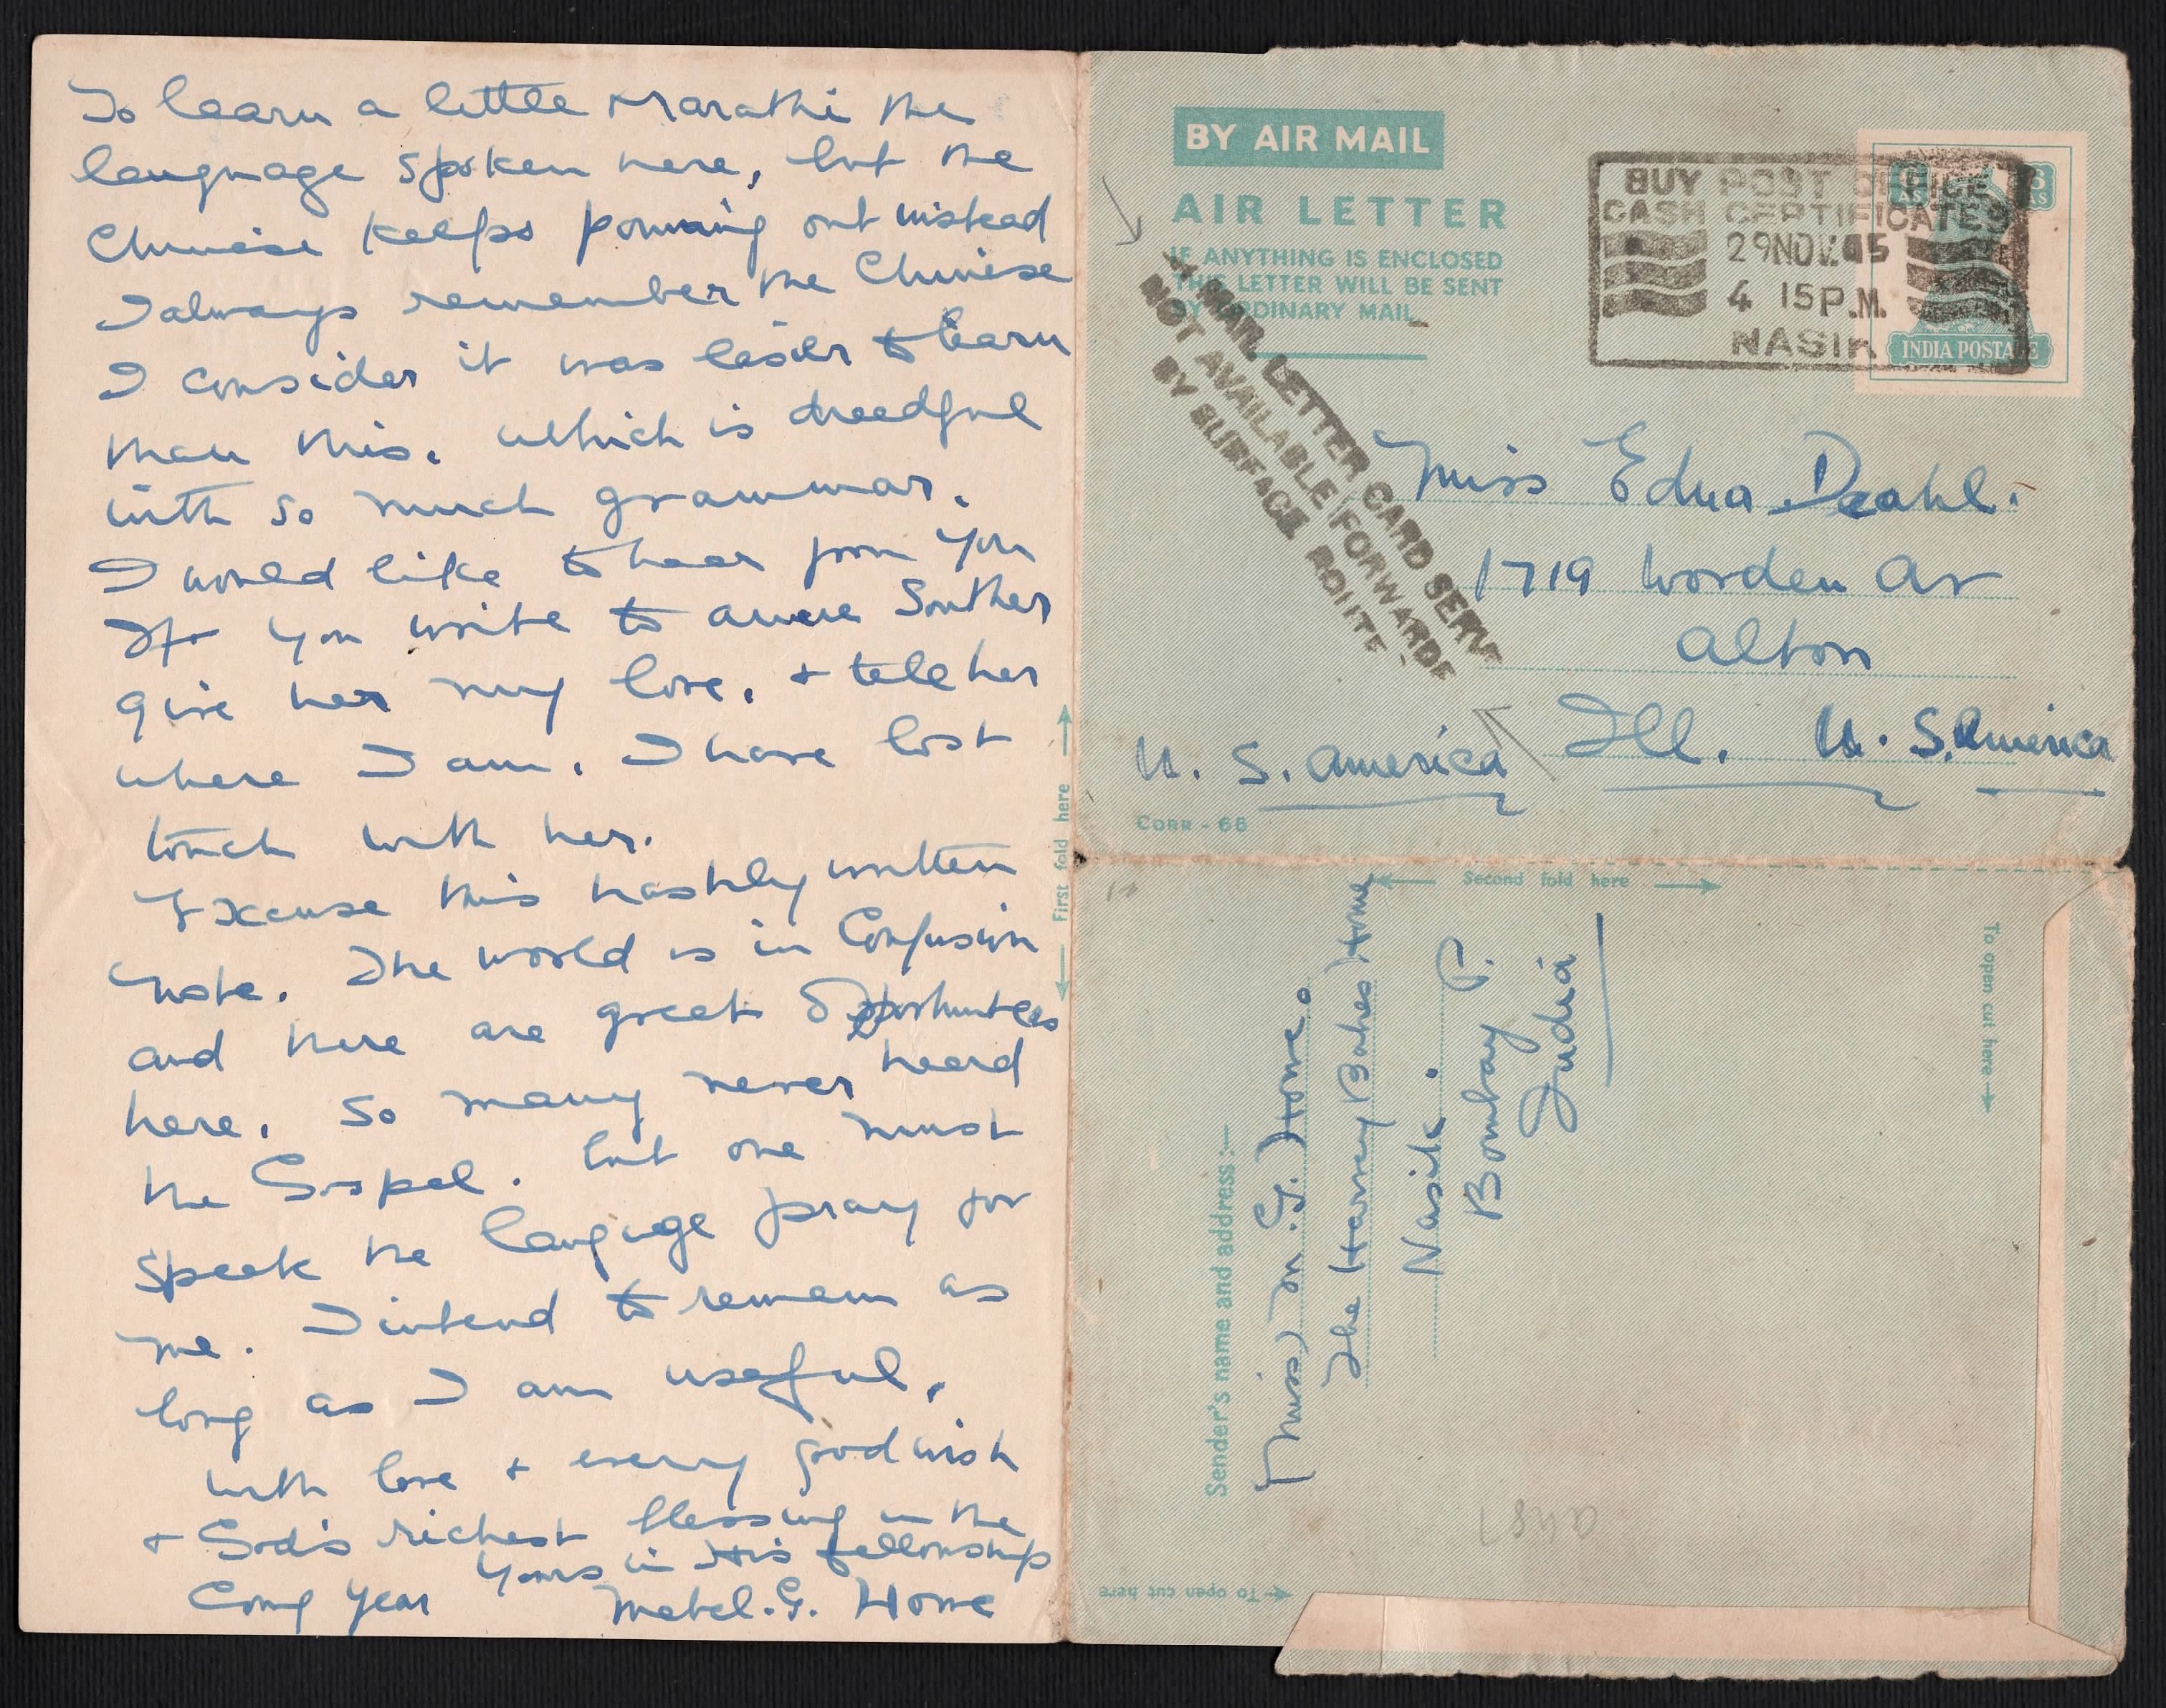 To learn a little Marathi the
language spoken here, but the
Chinese keeps pouring out instead
I always remember the Chinese
I consider it was easier to learn
than this. which is dreedful
with so much grammar.
I would like to hear from you
If you write to Souther
give her my love, + tell her
where I am. I have lost
touch with her.
Excuse this hashly written
note. The world is in Confusion
and there are great Opportunities
here. So many never heard
the Gospel. but one must
speak the language pray for
me. I intend to remain as
long as I am useful.
with love + every good wish
+ God's richest blessing in the
Comg Year
Yours in His fellowship
Mabel. G. Horne
First fold here
BY AIR MAIL
AIR LETTER
IF ANYTHING IS ENCLOSED
THIS LETTER WILL BE SENT
BY ORDINARY MAIL
BUY POST OFFICE
CASH CERTIFICATES
29 NOV.
4 15 P.M.
NASIK
6 AS
INDIA POSTAGE
LETTER CARD SERV
NOT AVAILABLE FORWARDE
BY SURFACE ROUTE
Miss Edna Deahl.
1719 Worden Av
Alton
Ill. U. S. America
U. S. America
CORR - 68
Second fold here
To open cut here
Sender's name and address:—
(Miss) M. G. Horne.
The Harvey Babies Home
Nasik.
Bombay P.
India
To open cut here